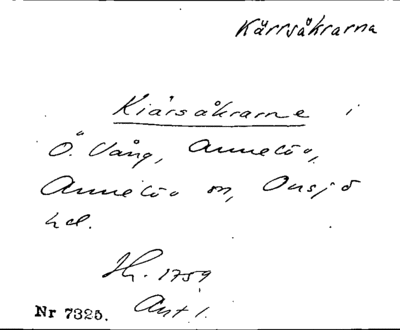 Kärrsåkrarna
Kiärsåkrarne i
Ö. Vång, Annelöv,
Annelöv sn, Onsjö
hd.
Hr. 1759
Akt 1.
Nr 7325.